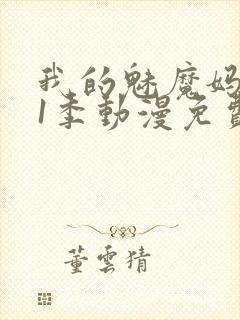 我的魅魔妈
1季動漫免費
董雲猜